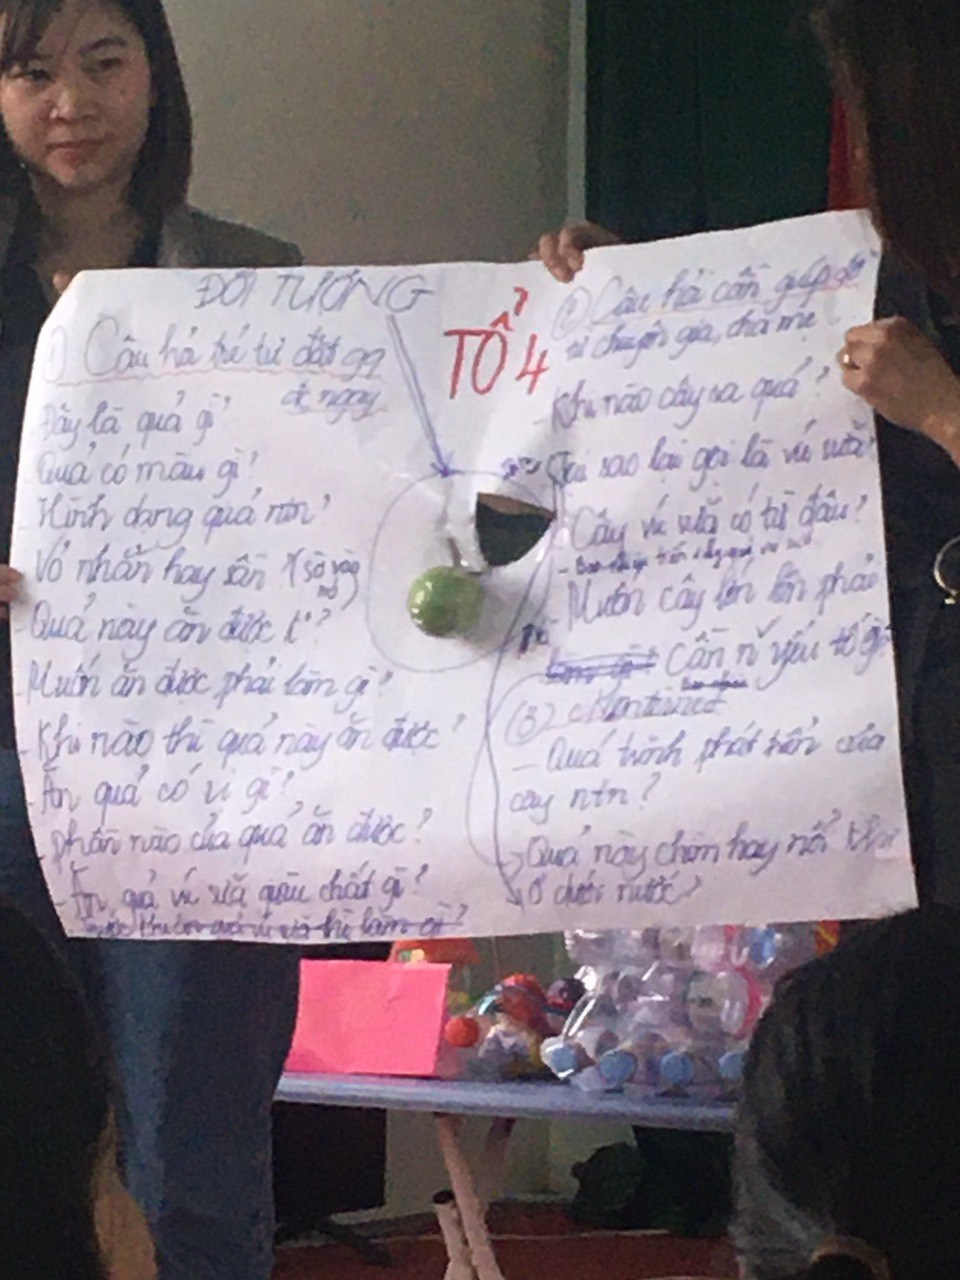 ĐỐI TƯỢNG
TỔ 4
① Câu hỏi trẻ tự đặt
đc ngay
- Đây là quả gì?
Quả có màu gì?
- Hình dạng quả ntn?
- Vỏ nhẵn hay sần (sờ vào
- Quả này ăn được k?
- Muốn ăn được phải làm gì?
- Khi nào thì quả này ăn được?
- Ăn quả có vị gì?
- Phần nào của quả ăn được?
- Ăn quả vú sữa giàu chất gì?
② Câu hỏi cần giúp đỡ
từ chuyên gia, cha mẹ
- Khi nào cây ra quả?
Tại sao lại gọi là vú sữa?
Cây vú sữa có từ đâu?
Muốn cây lớn lên phải
cần n~ yếu tố gì
(3)
- Quá trình phát triển của
cây ntn?
→ Quả này chìm hay nổi khi
ở dưới nước?